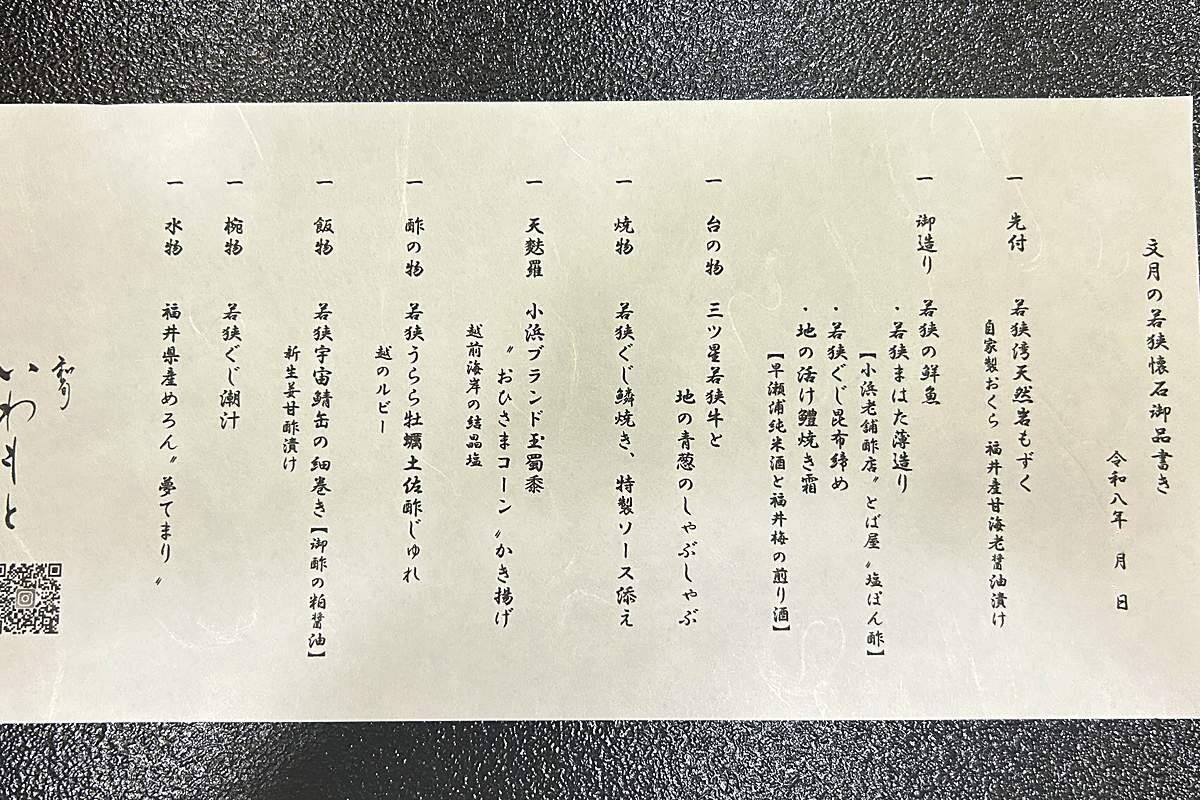 文月の若狭懐石御品書き
令和八年 月 日
一 先付 若狭湾天然岩もずく
自家製おくら 福井産甘海老醤油漬け
一 御造り 若狭の鮮魚
・若狭まはた薄造り
【小浜老舗酢店〝とば屋〟塩ぽん酢】
・若狭ぐじ昆布締め
・地の活け鱧焼き霜
【早瀬浦純米酒と福井梅の煎り酒】
一 台の物 三ツ星若狭牛と
地の青葱のしゃぶしゃぶ
一 焼物 若狭ぐじ鱗焼き、特製ソース添え
一 天麩羅 小浜ブランド玉蜀黍
〝おひさまコーン〟かき揚げ
越前海岸の結晶塩
一 酢の物 若狭うらら牡蠣土佐酢じゅれ
越のルビー
一 飯物 若狭宇宙鯖缶の細巻き【御酢の粕醤油】
新生姜甘酢漬け
一 椀物 若狭ぐじ潮汁
一 水物 福井県産めろん〝夢てまり〟
いわもと